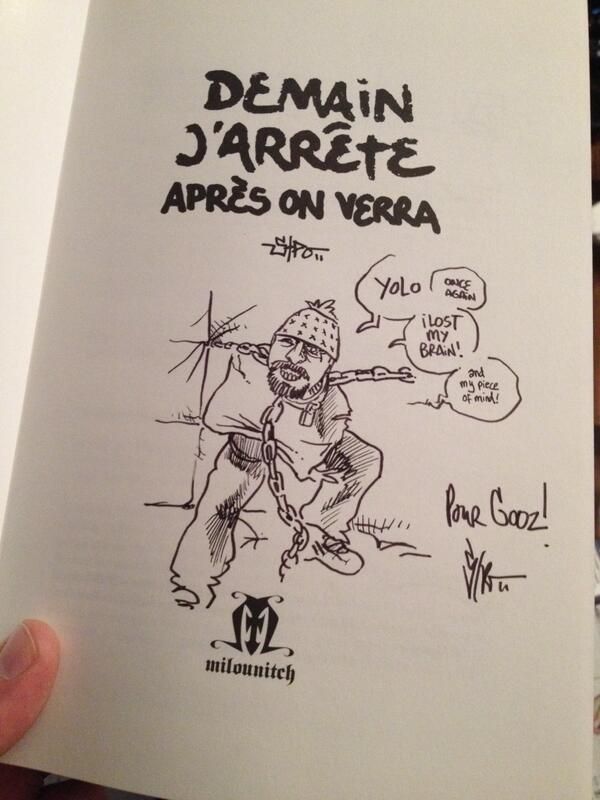 DEMAIN
J'ARRÊTE
APRÈS ON VERRA
YOLO
ONCE
AGAIN
i LOST
MY
BRAiN!
and
my piece
of mind!
Pour Gooz!
milounitch